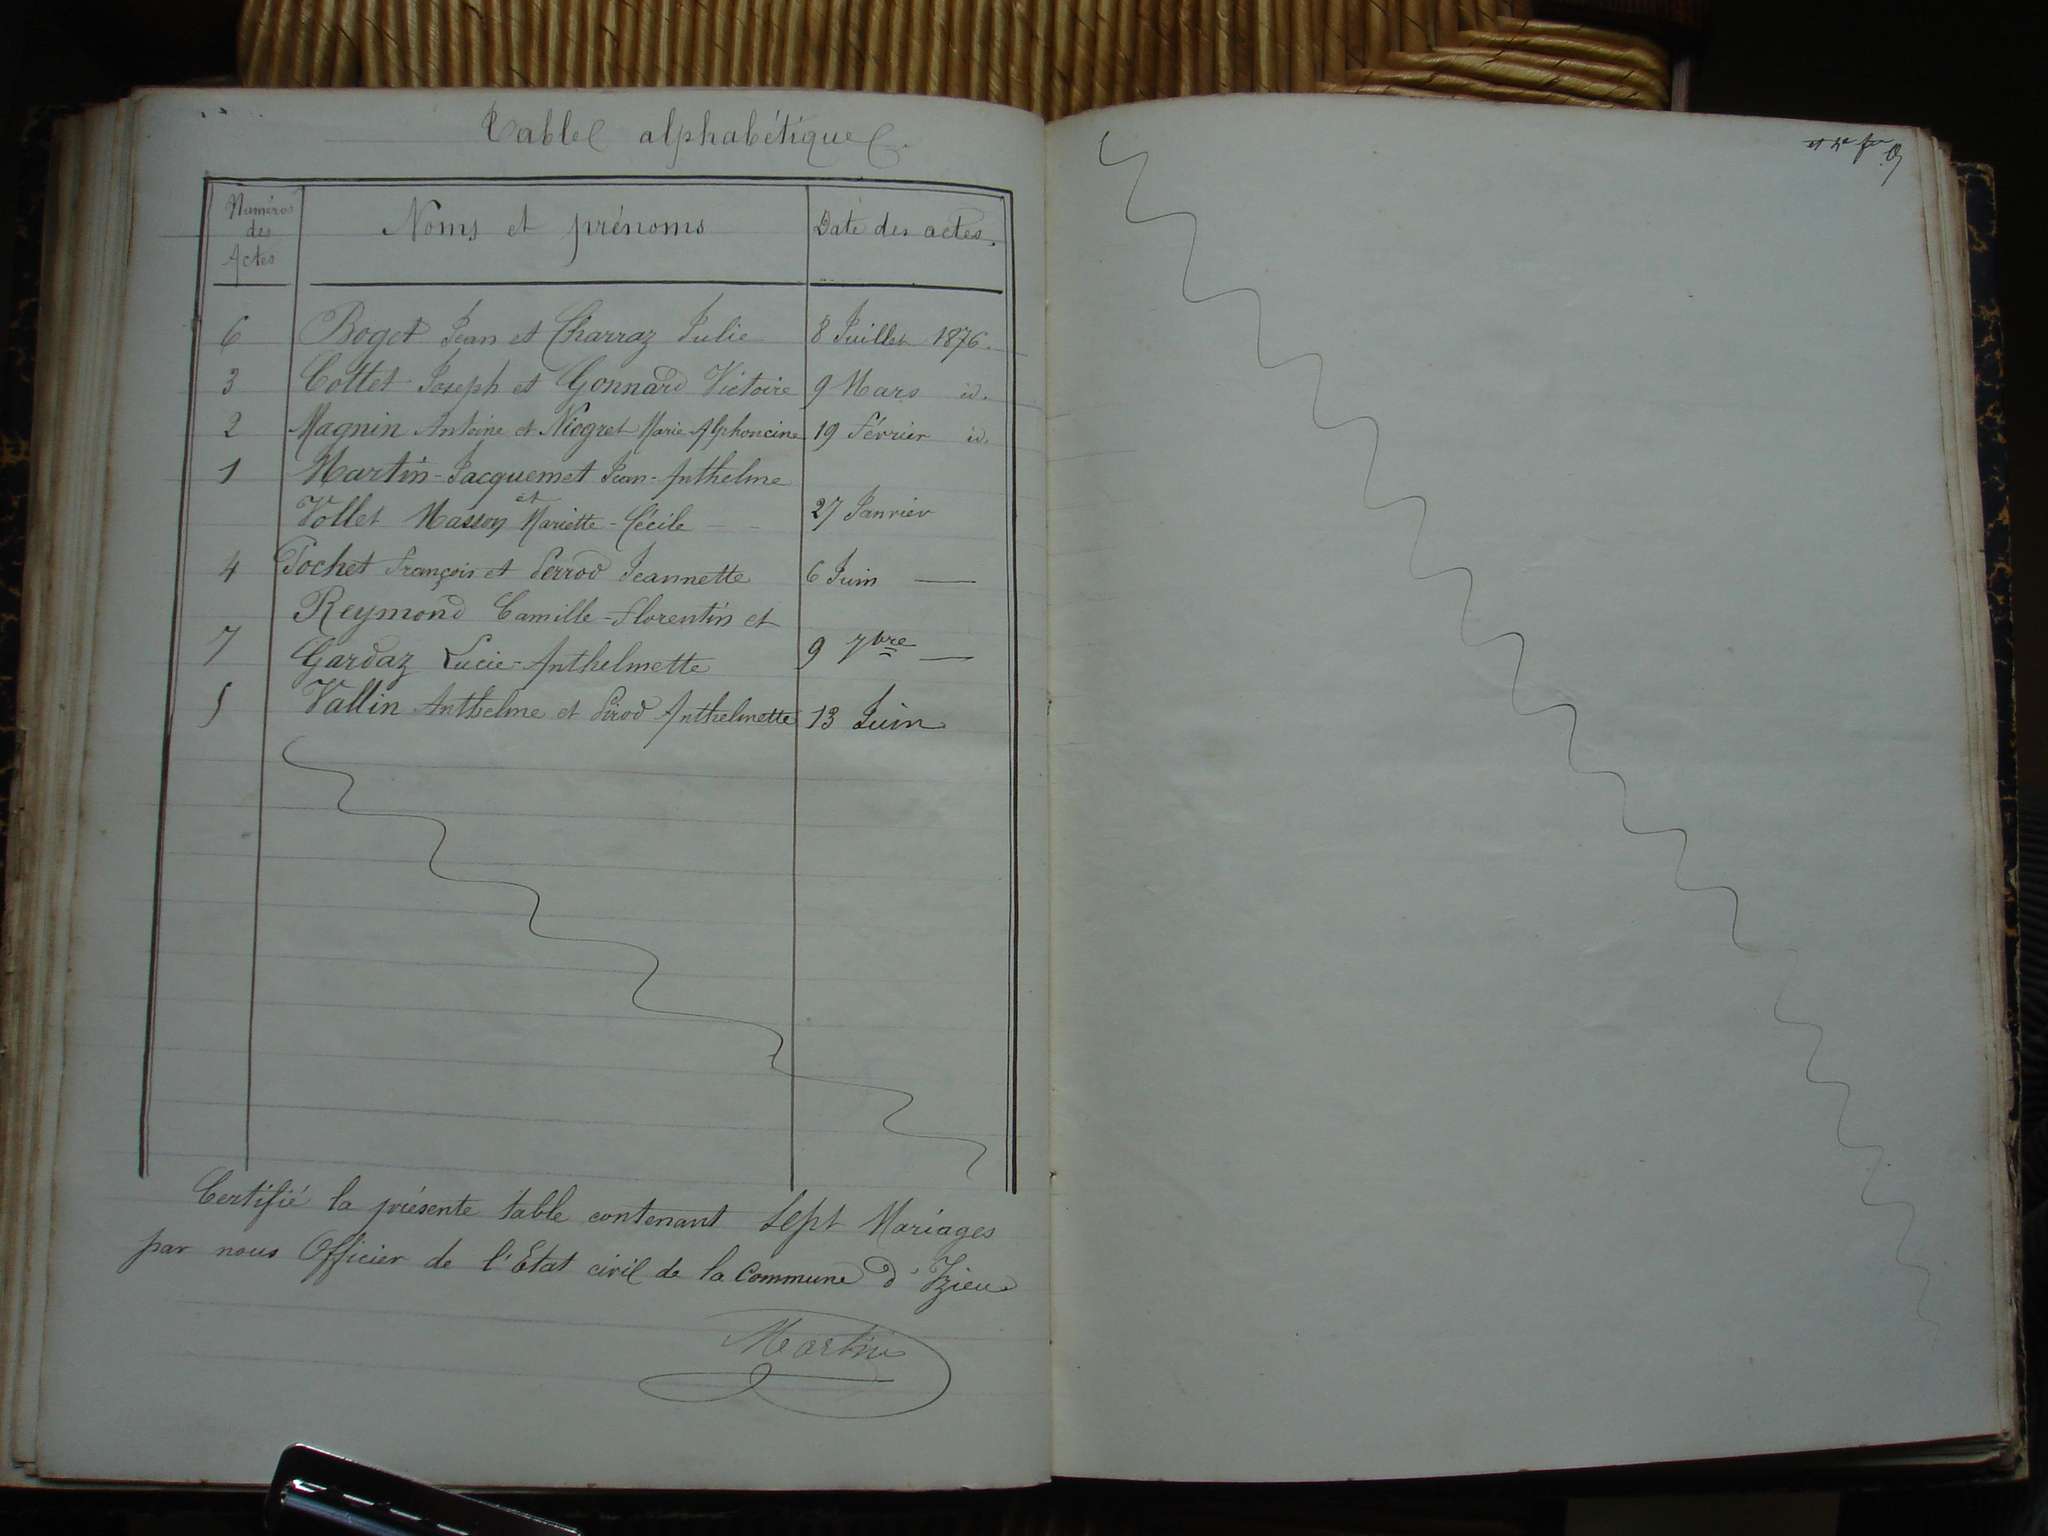 Table alphabétique
Numéros des Actes Noms et prénoms Date des actes.
6 Boget Jean et Charraz Julie 8 Juillet 1876.
3 Collet Joseph et Gonnard Victoire 9 Mars id.
2 Magnin Antoine et Niogret Marie Alphoncine 19 Février id.
1 Martin-Jacquemet Jean-Anthelme
et
Vollet Masson Mariette-Cécile 27 Janvier
4 Pochet François et Perrod Jeannette 6 Juin —
Reymond Camille-Florentin et
7 Gardaz Lucie-Anthelmette 9 7bre —
5 Vallin Anthelme et Pirod Anthelmette 13 Juin
Certifié la présente table contenant Sept Mariages
par nous Officier de l'Etat civil de la Commune d'Izieu
Martin